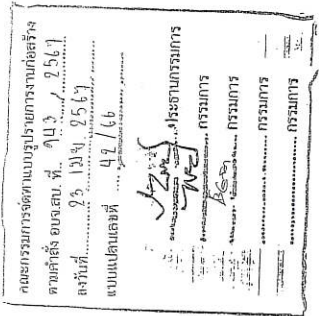 คณะกรรมการจัดทำแบบรูปรายการงานก่อสร้าง
ตามคำสั่ง อบจ.สบ. ที่ 743 / 2567
ลงวันที่ 23 เม.ย. 2567
แบบแปลนเลขที่ 42/66
ประธานกรรมการ
กรรมการ
กรรมการ
กรรมการ
กรรมการ